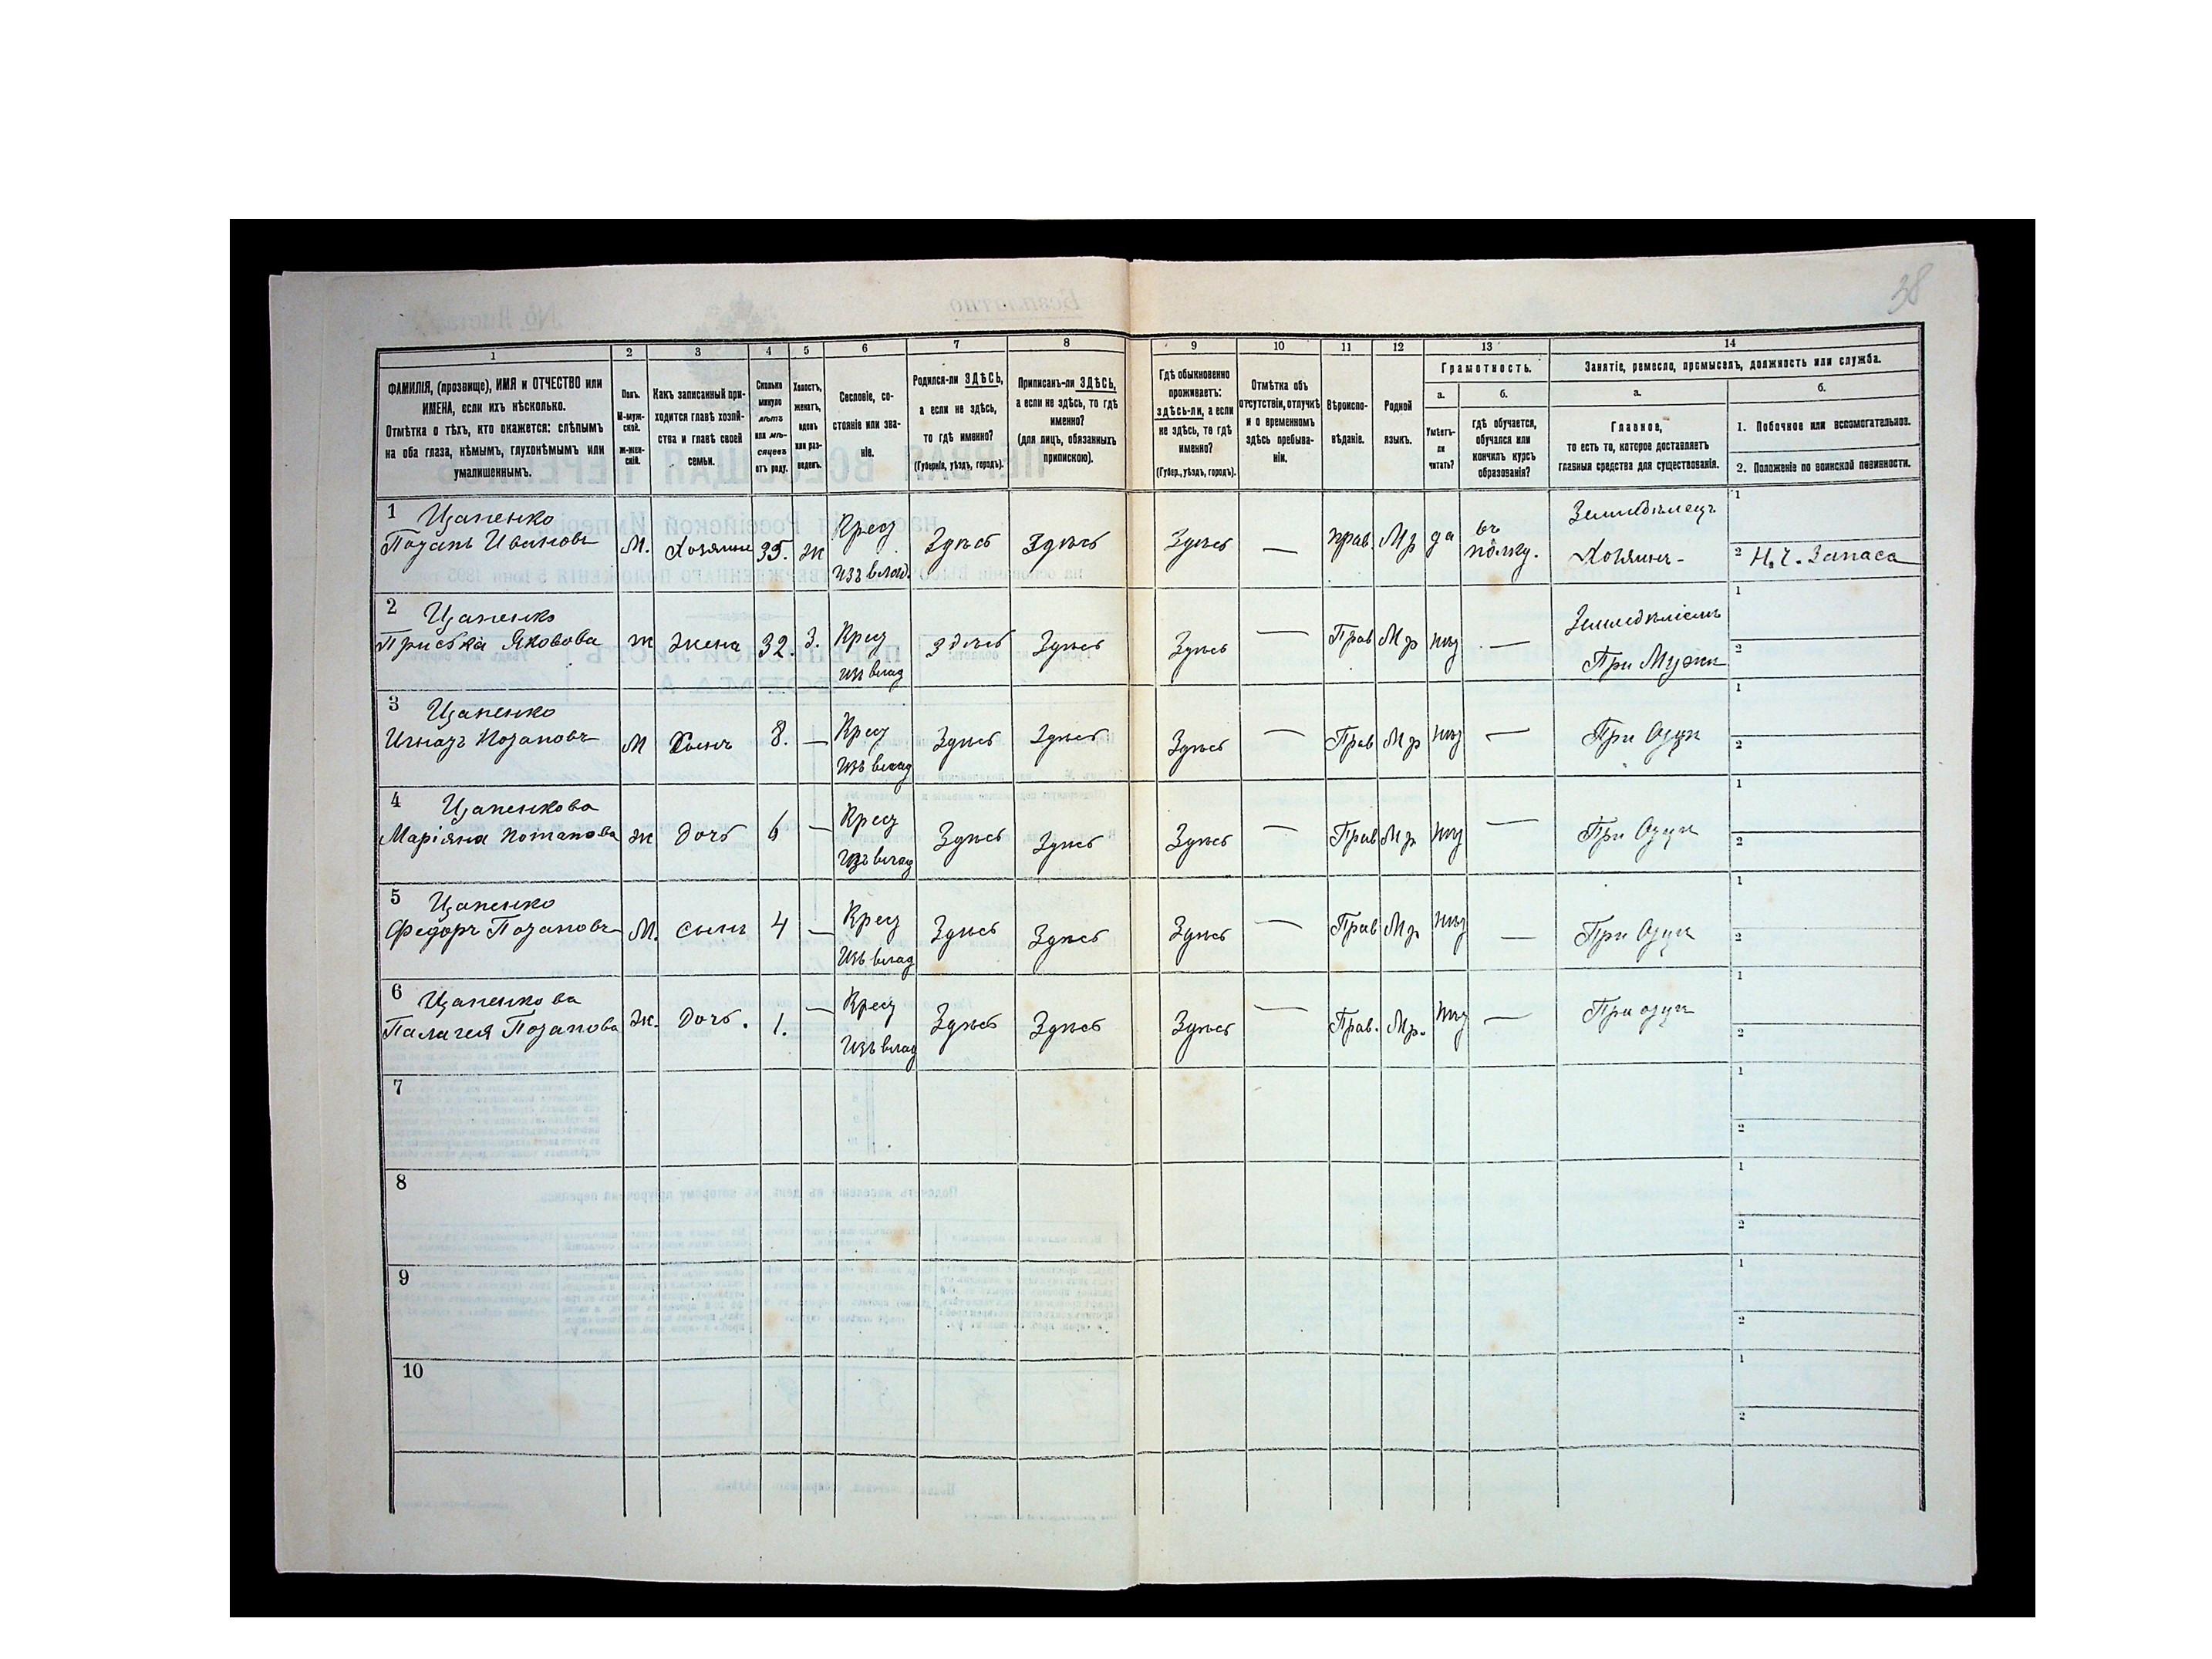 38
1
2
3
4
5
6
7
8
9
10
11
12
13
14
ФАМИЛІЯ, (прозвище), ИМЯ и ОТЧЕСТВО или
ИМЕНА, если ихъ нѣсколько.
Отмѣтка о тѣхъ, кто окажется: слѣпымъ
на оба глаза, нѣмымъ, глухонѣмымъ или
умалишеннымъ.
Полъ.
М-муж-
ской.
Ж-жен-
скій.
Какъ записанный при-
ходится главѣ хозяй-
ства и главѣ своей
семьи.
Сколько
минуло
лѣтъ
или мѣ-
сяцевъ
отъ роду.
Холостъ,
женатъ,
вдовъ
или раз-
веденъ.
Сословіе, со-
стояніе или зва-
ніе.
Родился-ли ЗДѢСЬ,
а если не здѣсь,
то гдѣ именно?
(Губернія, уѣздъ, городъ).
Приписанъ-ли ЗДѢСЬ,
а если не здѣсь, то гдѣ
именно?
(для лицъ, обязанныхъ
припискою).
Гдѣ обыкновенно
проживаетъ:
здѣсь-ли, а если
не здѣсь, то гдѣ
именно?
(Губер., уѣздъ, городъ).
Отмѣтка объ
отсутствіи, отлучкѣ
и о временномъ
здѣсь пребыва-
ніи.
Вѣроиспо-
вѣданіе.
Родной
языкъ.
Грамотность.
а.
Умѣетъ-
ли
читать?
б.
гдѣ обучается,
обучался или
кончилъ курсъ
образованія?
Занятіе, ремесло, промыселъ, должность или служба.
а.
Главное,
то есть то, которое доставляетъ
главныя средства для существованія.
б.
1. Побочное или вспомогательное.
2. Положеніе по воинской повинности.
1 Цапенко
Потапъ Ивановъ М. Хозяинъ 35. Ж Крест Здѣсь Здѣсь Здѣсь — прав Мр да въ полку. Земледѣлецъ 1
изъ влад. Хозяинъ- 2 Н.Ч. Запаса
2 Цапенко
Приська Яковова Ж Жена 32. З. Крест Здѣсь Здѣсь Здѣсь — Прав Мр нѣт — 1
изъ влад При Мужѣ 2
3 Цапенко
Игнатъ Потаповъ М Сынъ 8. — Крест Здѣсь Здѣсь Здѣсь — Прав Мр нѣт — При Отцѣ 1
изъ влад 2
4 Цапенкова
Маріяна Потапова Ж Дочь 6 — Крест Здѣсь Здѣсь Здѣсь — Прав Мр нѣт — При Отцѣ 1
изъ влад 2
5 Цапенко
Федоръ Потаповъ М. Сынъ 4 — Крест Здѣсь Здѣсь Здѣсь — Прав Мр нѣт — При Отцѣ 1
изъ влад 2
6 Цапенкова
Палагея Потапова Ж. Дочь. 1. — Крест Здѣсь Здѣсь Здѣсь — Прав. Мр. нѣт — При отцѣ 1
изъ влад 2
7 1
2
8 1
2
9 1
2
10 1
2